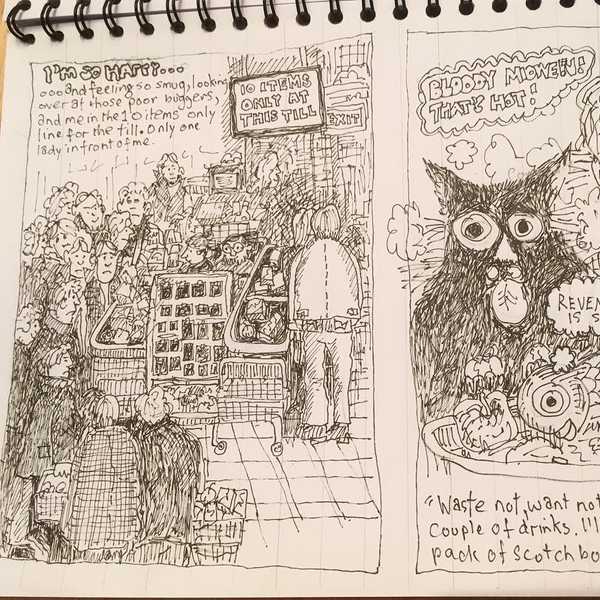 I'M SO HAPPY...
...and feeling so smug, looking
over at those poor buggers,
and me in the 10 items only
line for the till. Only one
lady in front of me.
10 ITEMS
ONLY AT
THIS TILL
EXIT
BLOODY MIOWE'N!
THAT'S HOT!
REVEN
IS S
"Waste not, want not
Couple of drinks. I'll
pack of Scotch bo